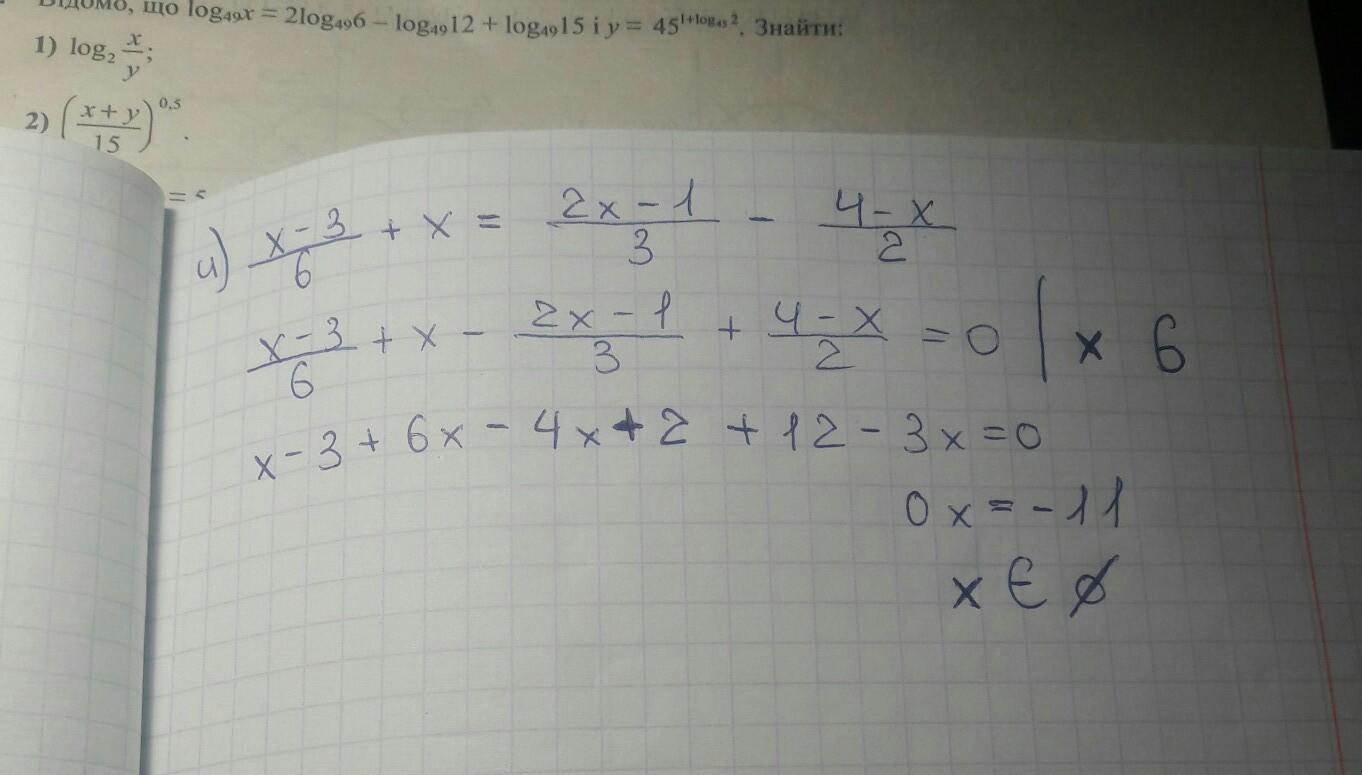 Відомо, що log₄₉x = 2log₄₉6 – log₄₉12 + log₄₉15 і y = 45^(1+log₄₅2). Знайти:
1) log₂ x/y;
2) ((x + y)/15)^0,5.
=
и) (x-3)/6 + x = (2x-1)/3 - (4-x)/2
(x-3)/6 + x - (2x-1)/3 + (4-x)/2 = 0 | × 6
x-3 + 6x - 4x + 2 + 12 - 3x = 0
0x = -11
x ∈ ∅